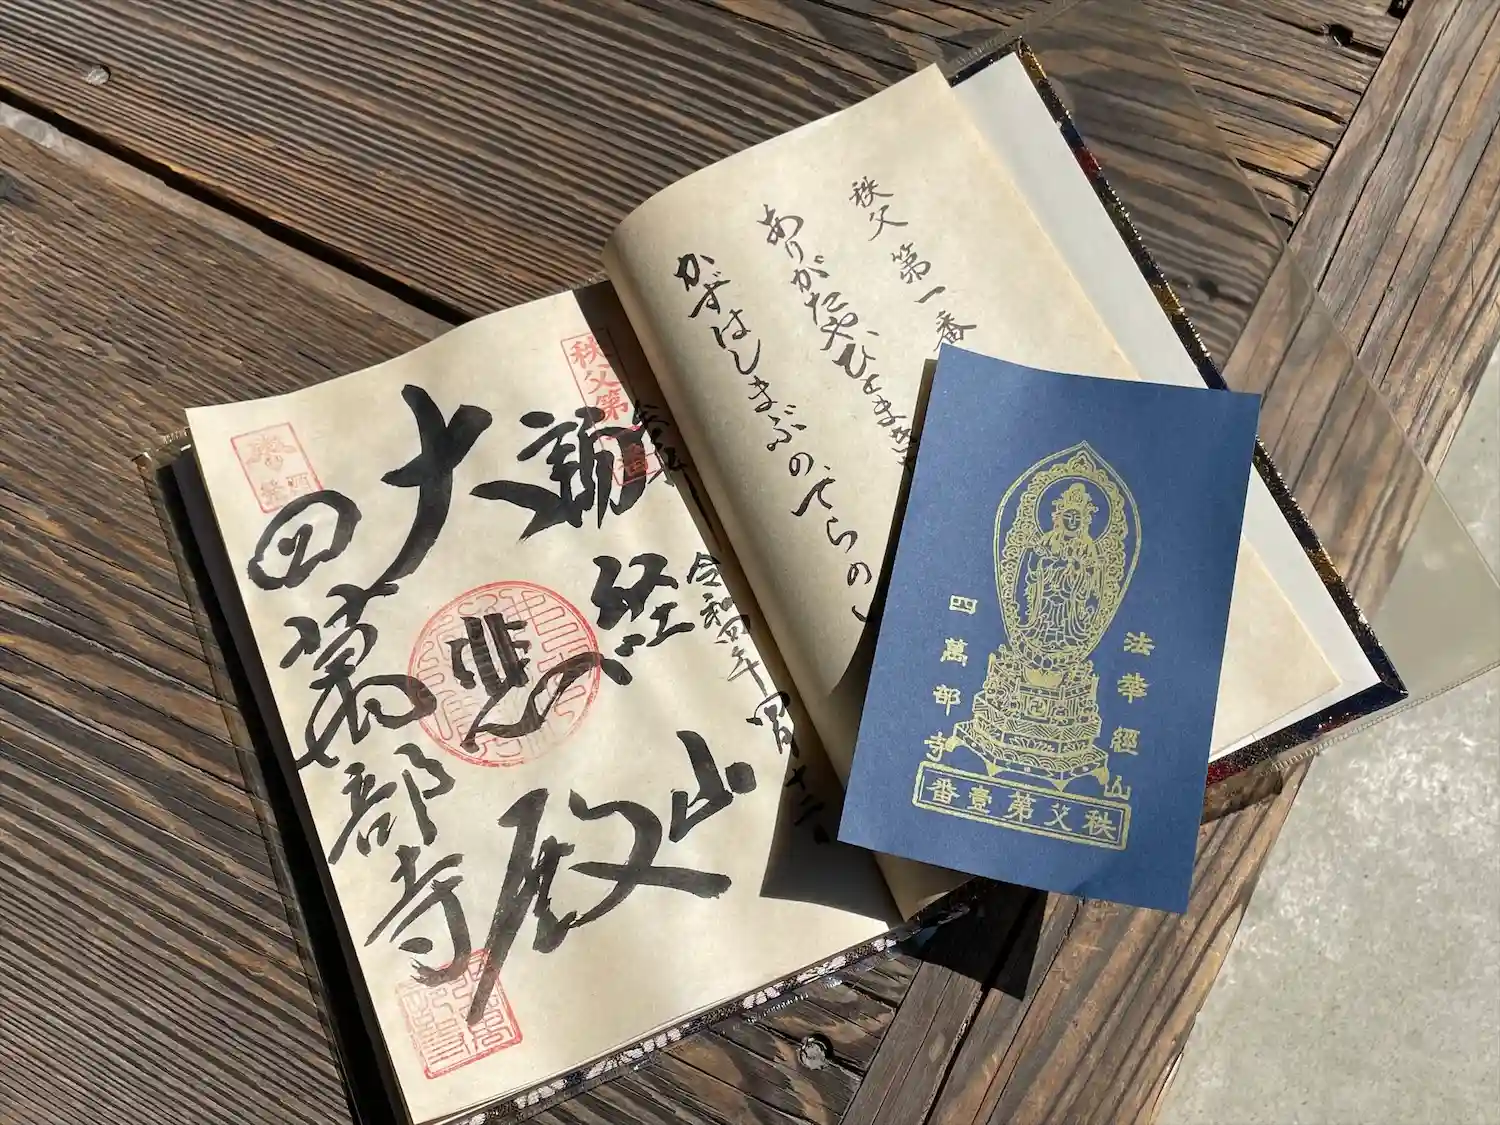 秩父 第一番
ありがたやひとまき
かずはしまぶのてらの
秩父第一番
令和四年十月十二日
誦経山
大悲殿
四萬部寺
法華經山
四萬部寺
秩父第壹番